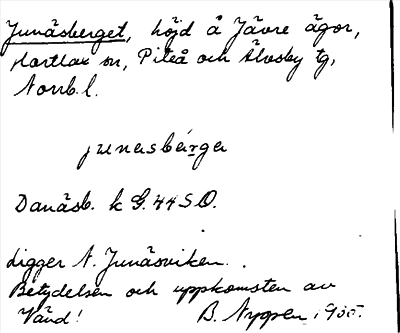 Junäsberget, höjd å Jävre ägor,
Hortlax sn, Piteå och Älvsby tg,
Norrb. l.
junasbärga
Danäsb. k G. 44 S.O.
Ligger N. Junäsviken.
Betydelsen och uppkomsten av
Vänd! B. Nygren, 1935.